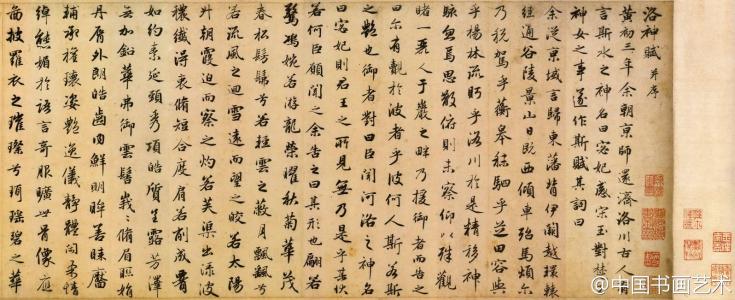 洛神賦 并序
黃初三年余朝京師還濟洛川古人有
言斯水之神名曰宓妃感宋玉對楚
神女之事遂作斯賦其詞曰
余從京域言歸東藩背伊闕越轘轅
經通谷陵景山日既西傾車殆馬煩尔
乃稅駕乎蘅皋秣駟乎芝田容與
乎楊林流眄乎洛川於是精移神
駭焉思散俯則未察仰以殊觀
睹一麗人于巖之畔乃援御者而告之
曰尔有覿於彼者乎彼何人斯若斯
之豔也御者對曰臣聞河洛之神名
曰宓妃則君王之所見無乃是乎其狀
若何臣願聞之余告之曰其形也翩若
驚鴻婉若游龍榮曜秋菊華茂
春松髣髴兮若輕雲之蔽月飄飄兮
若流風之迴雪遠而望之皎若太陽
升朝霞迫而察之灼若芙蕖出淥波
穠纖得衷脩短合度肩若削成
如約素延頸秀項皓質呈露芳澤
無加鉛華弗御雲髻峩峩脩眉聯娟
丹脣外朗皓齒內鮮明眸善睞靨
輔承權瓌姿豔逸儀靜體閑柔情
綽態媚於語言奇服曠世骨像應
圖披羅衣之璀璨兮珥瑤碧之華
@中国书画艺术